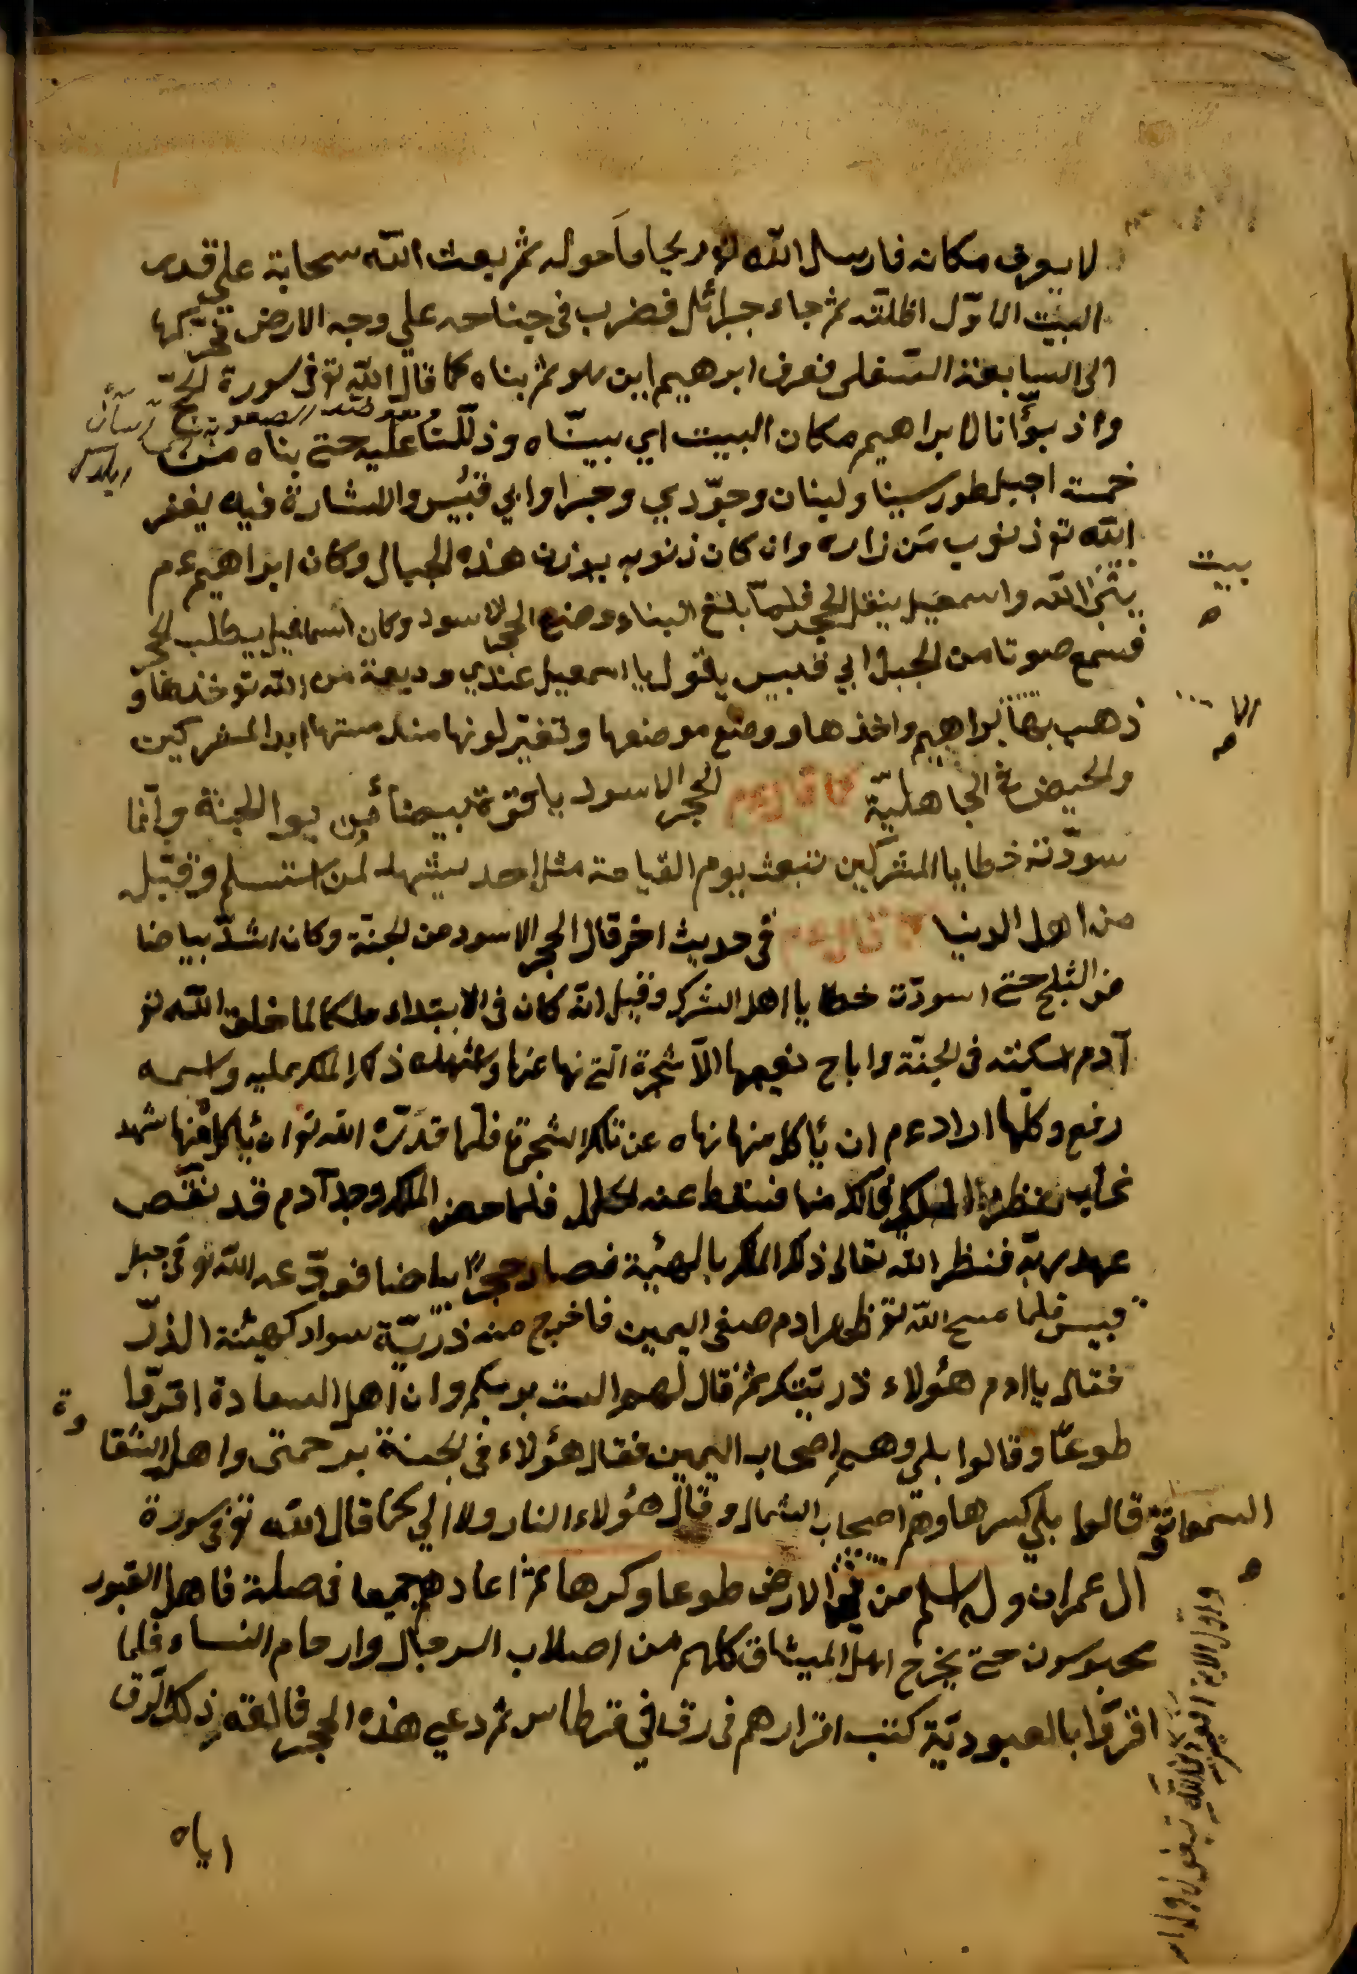 لا يعرف مكانه فارسل الله لؤ ريحا ما حوله ثم بعث الله سحابة علي قدر
البيت الاوّل اظلته ثم جاء جبرائل فضرب في جناحه علي وجه الارض
الى السابعة السفلى فعرف ابرهيم اين هو ثم بناه كما قال الله تع فى سورة الحجّ
واذ بوّأنا لابراهيم مكان البيت اي بيـّناه وذلّلنا عليه حتى بناه من
خمسة اجبل طور سينا ولبنان وجوّدي وحرا وابي قبيس والاشارة فيه يغفر
الله تع ذنوب مَن زاره وان كان ذنوبه بوزن هذه الجبال وكان ابراهيم ءم
بيت
يبنى الله واسمعيل ينقل الحجر فلمّا بلغ البناء وضع الحجر الاسود وكان اسماعيل يطلب الحجر
فسمع صوتا من الجبل ابي قبيس يقول يا اسمعيل عندي وديعة من الله تع خذها و
ذهب بها ابراهيم واخذها ووضع موضعها وتغيّر لونها منذ مستها ايد المشركين
والحيض في الجاهليّة كما قال ءم الحجر الاسود ياقوتة بيضأ من يوا الجنة وانّما
سودّته خطايا المشركين تبعث يوم القيامة مثل احد يشهد لمن استسلم وقبّل
من اهل الدنيا كما قال ءم في حديث اخر قال الحجر الاسود من الجنّة وكان اشدّ بياضا
من الثلج حتى اسودّة خطايا اهل الشرك وقيل انّه كان فى الابتداء ملكا لما خلق الله تع
آدم اسكنه فى الجنّة واباح نعيمها الاّ شجرة التى نهاه عنها واشهده ذلك الملك عليه واسمه
رفع وكلّما اراد ءم ان يأكل منها نهاه عن تلك الشجرة فلمّا قدّره الله تع ان يأكل منها شهد
غأب نظر الملك فاكل منها فسقط عنه الحلل فلما حضر الملك وجد آدم قد نقّص
عهد ربّه فنظر الله تعالى ذلك الملك بالهيبة فصار حجرًا بياضا فودّعه الله تع فى جبل
قبيس فلما مسح الله تع ظهر ادم صفى اليمين فاخرج منه ذرّيّة سواد كهيئة الذرّ
فقال يا ادم هئولاء ذريّتك ثم قال لهم الست بربكم وان اهل السعادة اقرّوا
طوعًا وقالوا بلي وهم اصحاب اليمين فقال هؤلاء فى الجنة برحمتى واهل الشقا
وة
قالوا بلي كسرها وهم اصحاب الشمال وقال هؤلاء النار ولا ابالي كما قال الله تع فى سورة
السموات و
آل عمران وله اسلم من فى الارض طوعا وكرها ثم اعادهم جميعا فى صلبه فاهل القبور
محبوسون حتى يخرج اهل الميثاق كلهم من اصلاب الرجال وارحام النساء فلما
اقرّوا بالعبوديّة كتب اقرارهم فى رق في قرطاس ثم دعي هذه الحجر فالقه ذلك الرّق
اياه